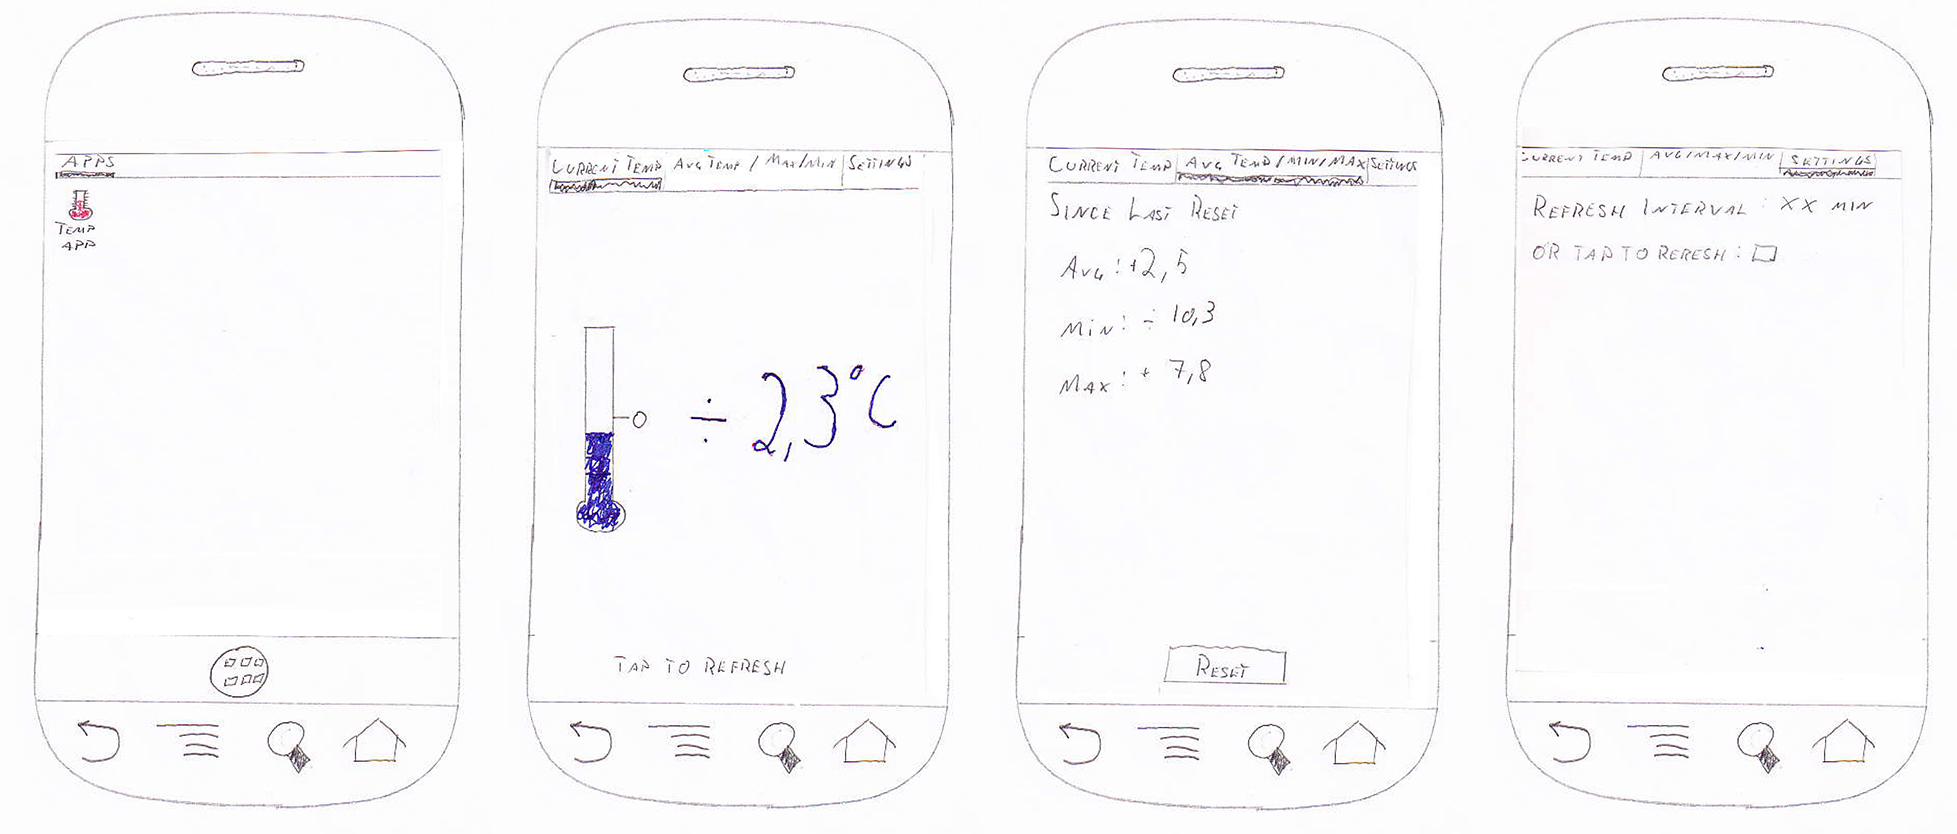 APPS
TEMP
APP
CURRENT TEMP AVG TEMP / MAX/MIN SETTINGS
0
÷ 2,3°C
TAP TO REFRESH
CURRENT TEMP AVG TEMP/MIN/MAX SETTINGS
SINCE LAST RESET
AVG: +2,5
MIN: ÷ 10,3
MAX: + 7,8
RESET
CURRENT TEMP AVG/MAX/MIN SETTINGS
REFRESH INTERVAL: XX MIN
OR TAP TO RERESH: